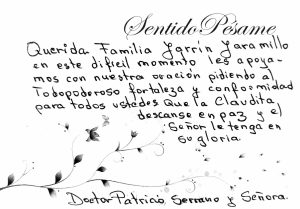 Sentido Pésame
Querida Familia Ygrrin Jaramillo
en este dificil momento les apoya-
mos con nuestra oración pidiendo al
Todopoderoso fortaleza y conformidad
para todos ustedes que la Claudita,
descanse en paz y el
Señor le tenga en
su gloria.
Doctor Patricio Serrano y Señora.